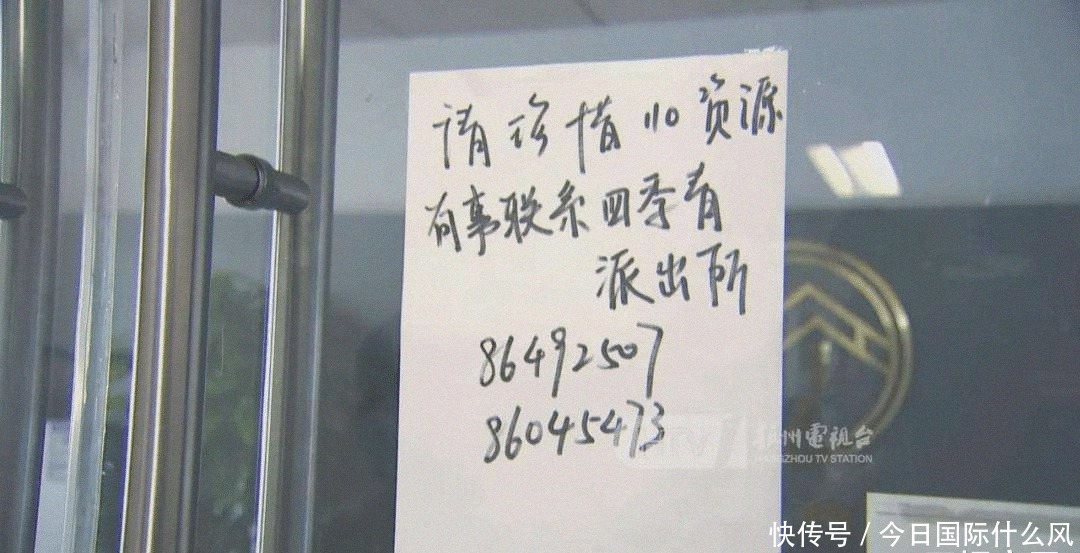 请珍惜110资源
有事联系四季青
派出所
86492507
86045473
杭州電视台
HANGZHOU TV STATION
快传号/今日国际什么风